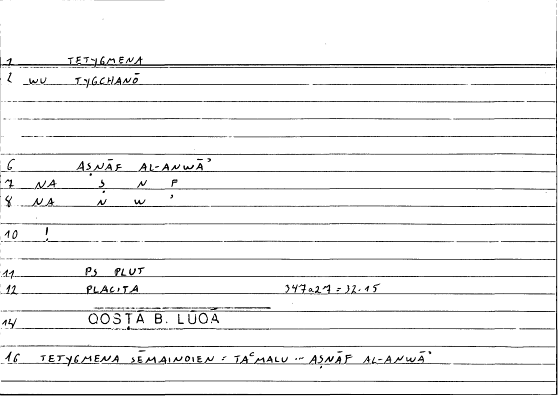 1 TETYGMENA
2 WU TYGCHANŌ
6 AṢNĀF AL-ANWĀʾ
7 NA Ṣ N F
8 NA N W ʾ
10 !
11 PS PLUT
12 PLACITA 347a27 = 32.15
14 QOSṬA B. LUQA
16 TETYGMENA SĒMAINOIEN = TAʿMALU ... AṢNĀF AL-ANWĀʾ